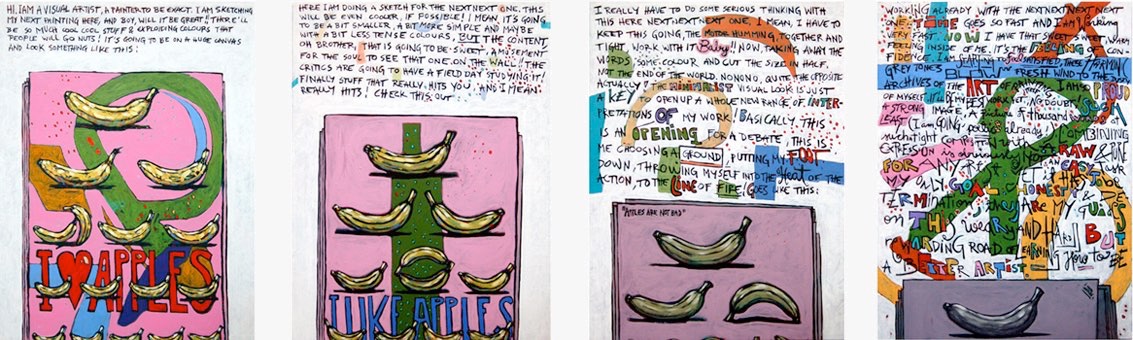 HI, I AM A VISUAL ARTIST, A PAINTER TO BE EXACT. I AM SKETCHING
MY NEXT PAINTING HERE, AND BOY, WILL IT BE GREAT!! THERE'LL
BE SO MUCH COOL COOL STUFF & EXPLODING COLOURS THAT
PEOPLE WILL GO NUTS! IT'S GOING TO BE ON A HUGE CANVAS
AND LOOK SOMETHING LIKE THIS:
I ♥ APPLES
HERE I AM DOING A SKETCH FOR THE NEXT NEXT ONE. THIS
WILL BE EVEN COOLER, IF POSSIBLE! I MEAN, IT'S GOING
TO BE A BIT SMALLER, A BIT MORE SIMPLE AND MAYBE
WITH A BIT LESS TENSE COLOURS, BUT THE CONTENT,
OH BROTHER, THAT IS GOING TO BE SWEET, AMUSEMENT
FOR THE SOUL TO SEE THAT ONE ON THE WALL!! THE
CRITICS ARE GOING TO HAVE A FIELD DAY STUDYING IT!
FINALLY STUFF THAT REALLY HITS YOU, AND I MEAN
REALLY HITS! CHECK THIS OUT:
I LIKE APPLES
I REALLY HAVE TO DO SOME SERIOUS THINKING WITH
THIS HERE NEXT NEXT NEXT ONE, I MEAN, I HAVE TO
KEEP THIS GOING, THE MOTOR HUMMING, TOGETHER AND
TIGHT, WORK WITH IT Baby!! NOW, TAKING AWAY THE
WORDS, SOME COLOUR AND CUT THE SIZE IN HALF,
NOT THE END OF THE WORLD. NONONO, QUITE THE OPPOSITE
ACTUALLY! THE MINIMALIST VISUAL LOOK IS JUST
A KEY TO OPEN UP A WHOLE NEW RANGE OF INTER-
PRETATIONS OF MY WORK! BASICALLY, THIS
IS AN OPENING FOR A DEBATE, THIS IS
ME CHOOSING A GROUND, PUTTING MY FOOT
DOWN, THROWING MYSELF INTO THE Heat OF THE
ACTION, TO THE LINE OF FIRE! GOES LIKE THIS:
"APPLES ARE NOT BAD"
WORKING ALREADY WITH THE NEXT NEXT NEXT NEXT
ONE. TIME GOES SO FAST AND I AM
FAST. NOW I HAVE THAT SWEET
FEELING INSIDE OF ME. IT'S THE FEELING OF CON-
FIDENCE. I AM SATISFIED, THESE
GREY TONES BLOW FRESH WIND TO THE
ARCHIVES OF THE ART OF I AM SO PROUD
OF MYSELF, BEST WORK YET, NO DOUBT! SUCH
A STRONG IMAGE, A OF thousand
LEAST (I am GOING already) COMBINING
with RAW & PURE
EXPRESSION is
FOR ANY ARTIST
MY ONLY GOAL HONEST
ON THIS weary AND HARD BUT
REWARDING ROAD OF LEARNING HOW TO BE
A BETTER ARTIST